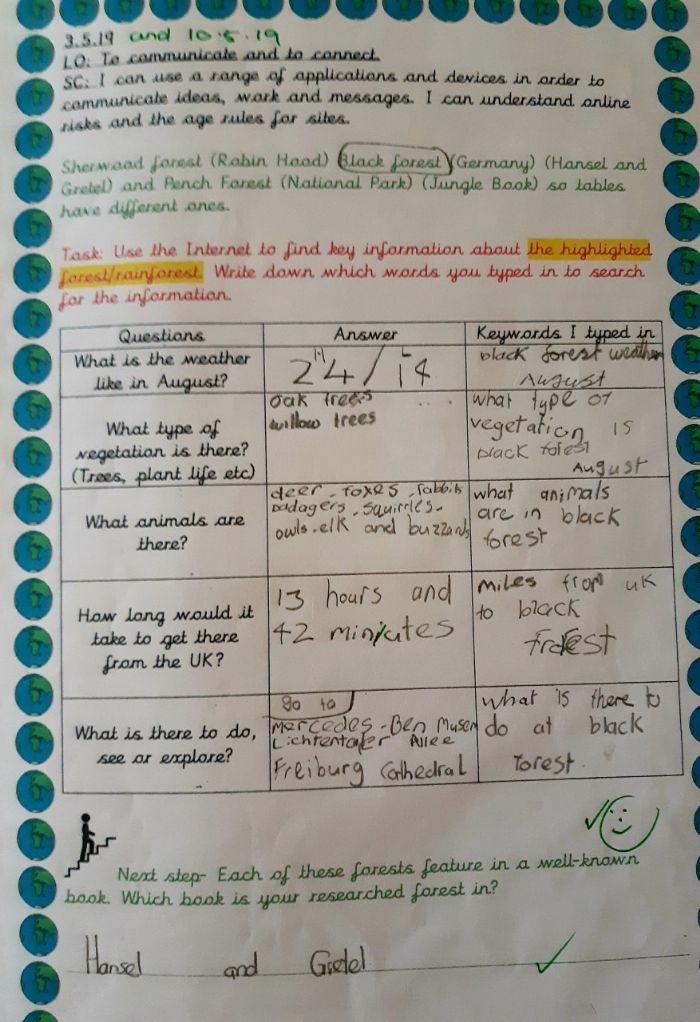 3.5.19 and 10.5.19
LO: To communicate and to connect.
SC: I can use a range of applications and devices in order to
communicate ideas, work and messages. I can understand online
risks and the age rules for sites.
Sherwood forest (Robin Hood) Black forest (Germany) (Hansel and
Gretel) and Pench Forest (National Park) (Jungle Book) so tables
have different ones.
Task: Use the Internet to find key information about the highlighted
forest/rainforest. Write down which words you typed in to search
for the information.
Questions Answer Keywords I typed in
What is the weather
like in August?
24/14
black forest weather
August
What type of
vegetation is there?
(Trees, plant life etc)
oak trees
willow trees
what type of
vegetation is
black forest
August
What animals are
there?
deer. foxes. rabbits
badagers. squirrles.
owls. elk and buzzards
what animals
are in black
forest
How long would it
take to get there
from the UK?
13 hours and
42 miniutes
miles from uk
to black
frdest
What is there to do,
see or explore?
go to
Mercedes-Ben Musem
Lichtentaler Allee
Freiburg Cathedral
what is there to
do at black
forest.
Next step- Each of these forests feature in a well-known
book. Which book is your researched forest in?
Hansel and Gretel